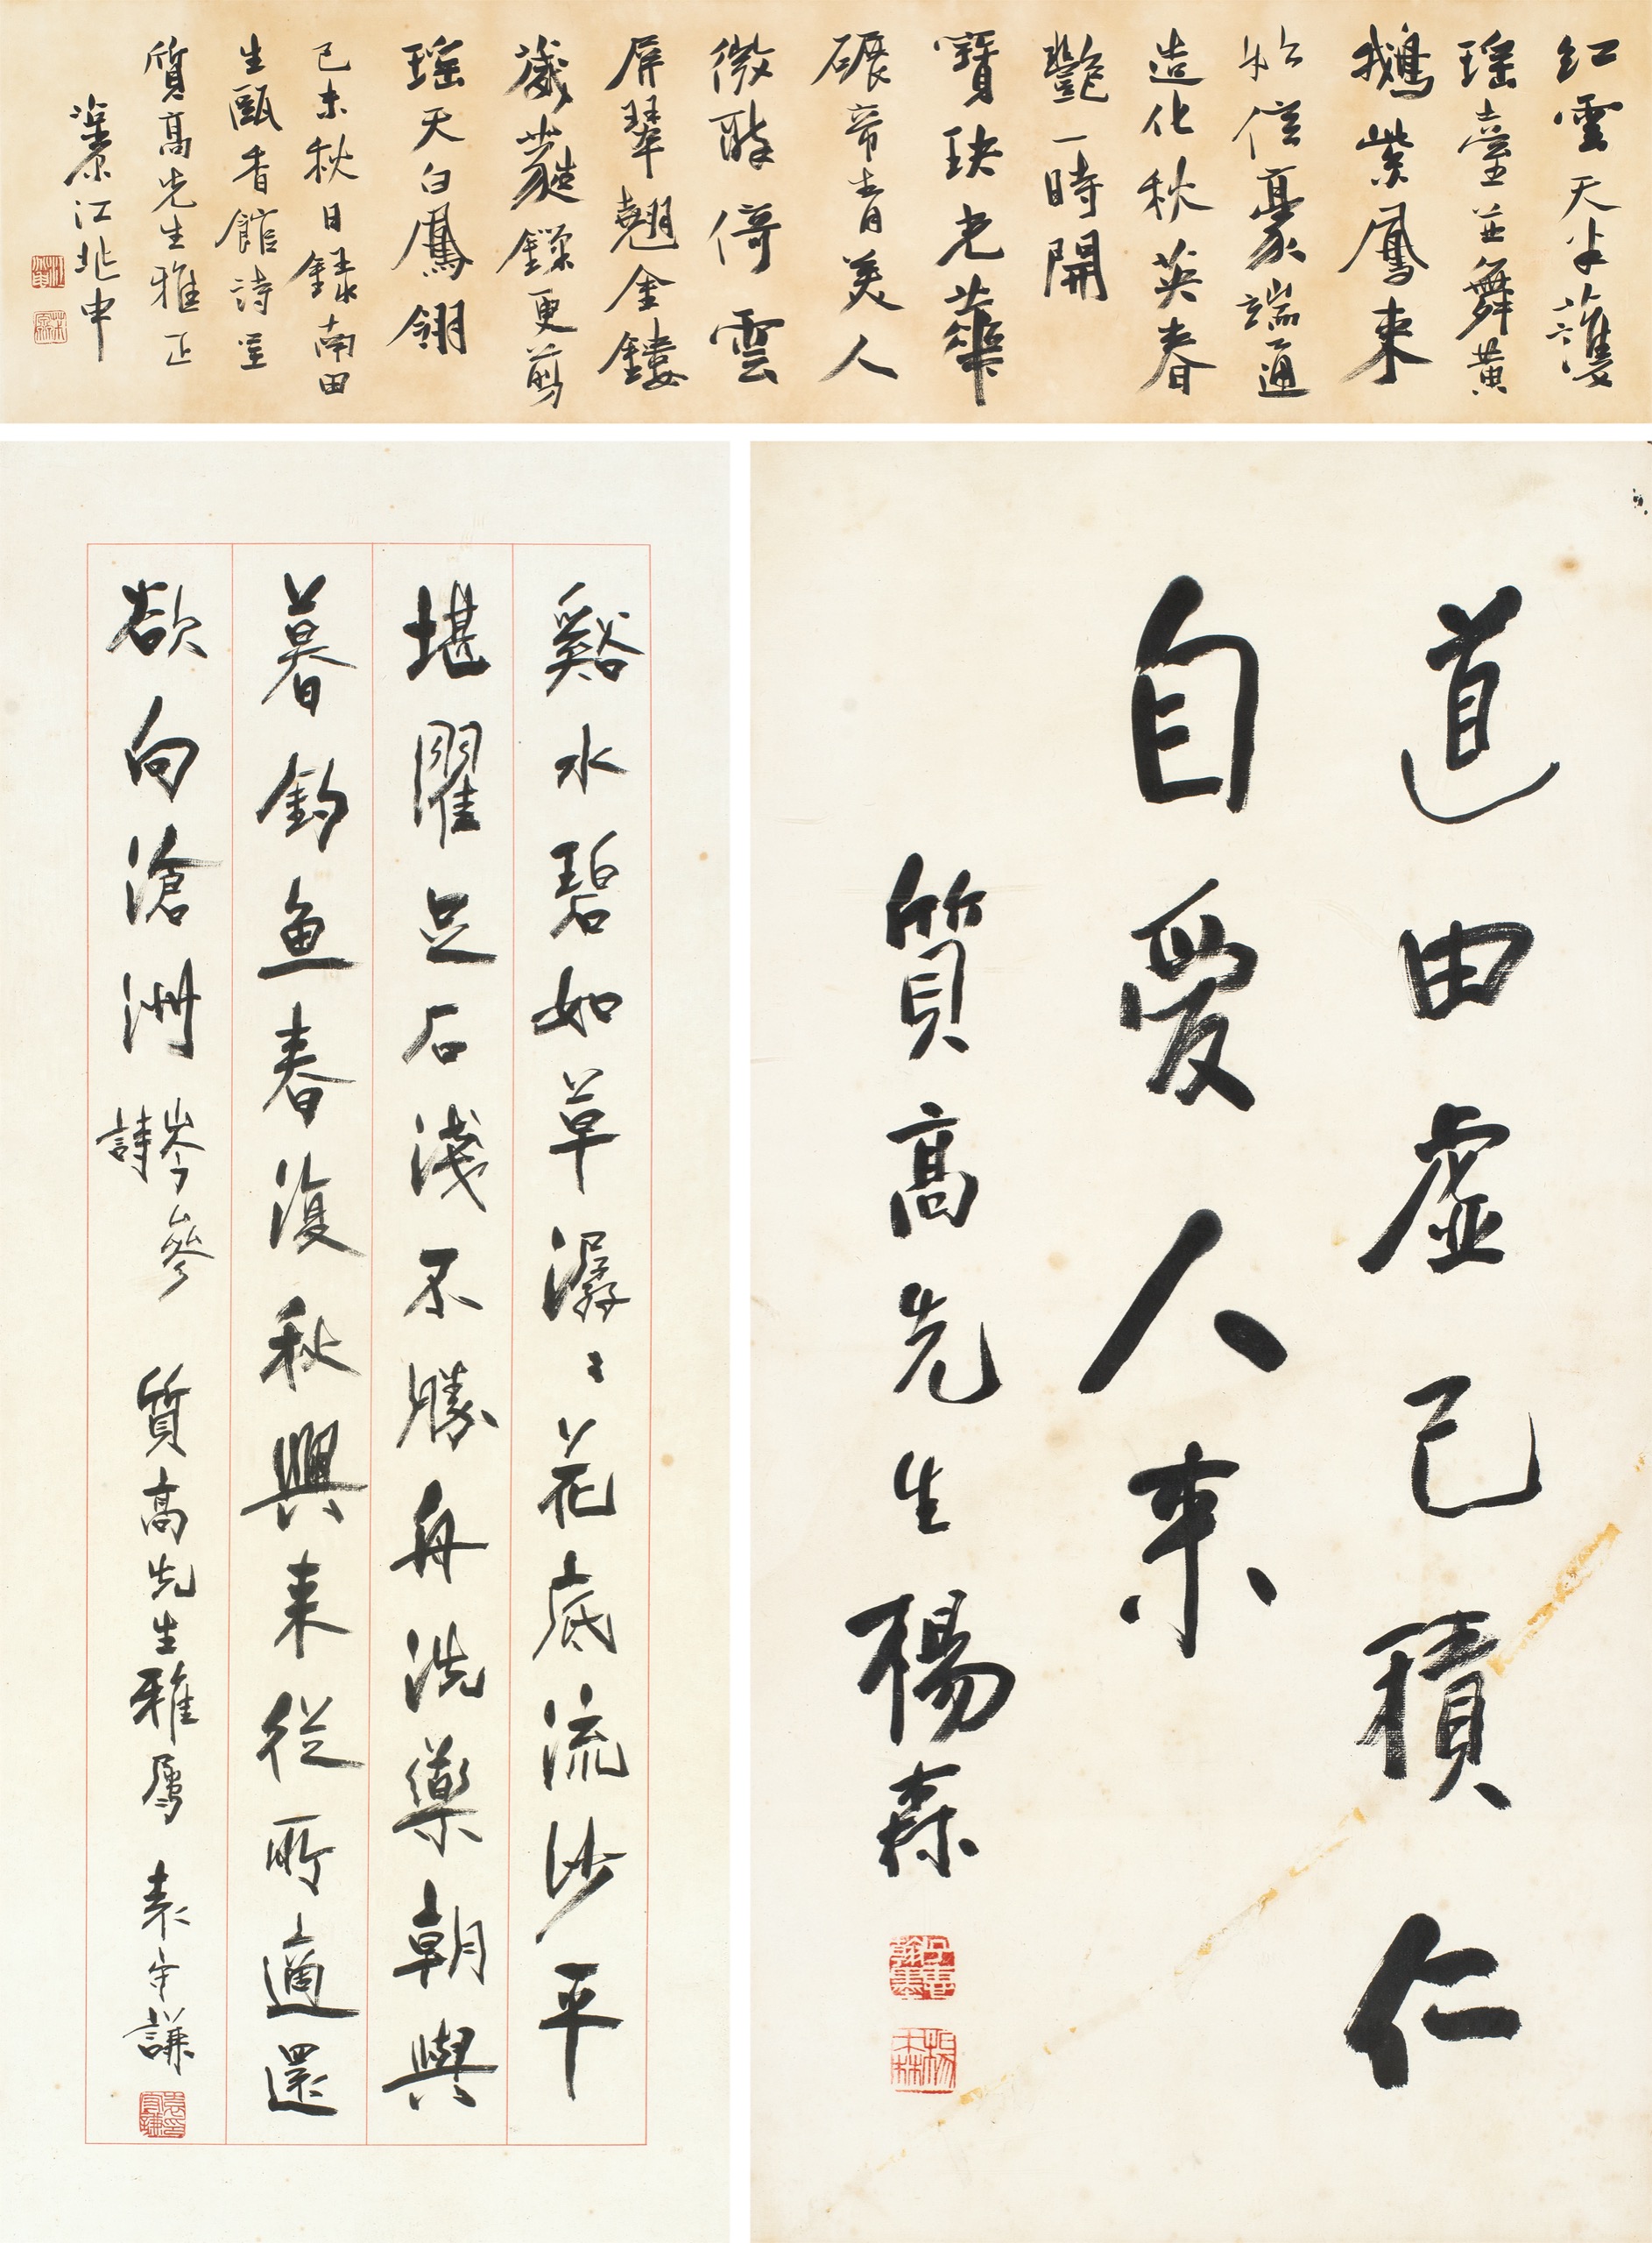 紅雲天半護
瑤臺並舞黃
鵝紫鳳來
始信豪端通
造化秋英春
艷一時開
寶玦光華
碾帝青美人
微醉倚雲
屏翠翹金鏤
葳蕤鎖更剪
瑤天白鳳翎
己未秋日錄南田
生甌香館詩呈
質高先生雅正
江兆申
道由虛己積仁
自愛人來
質高先生 楊森
子惠翰墨
楊森
谿水碧如草潺〻花底流沙平
堪濯足石淺不勝舟洗藥朝與
暮釣魚春復秋興來從所適還
欲向滄洲 岑參詩 質高先生雅屬 袁守謙